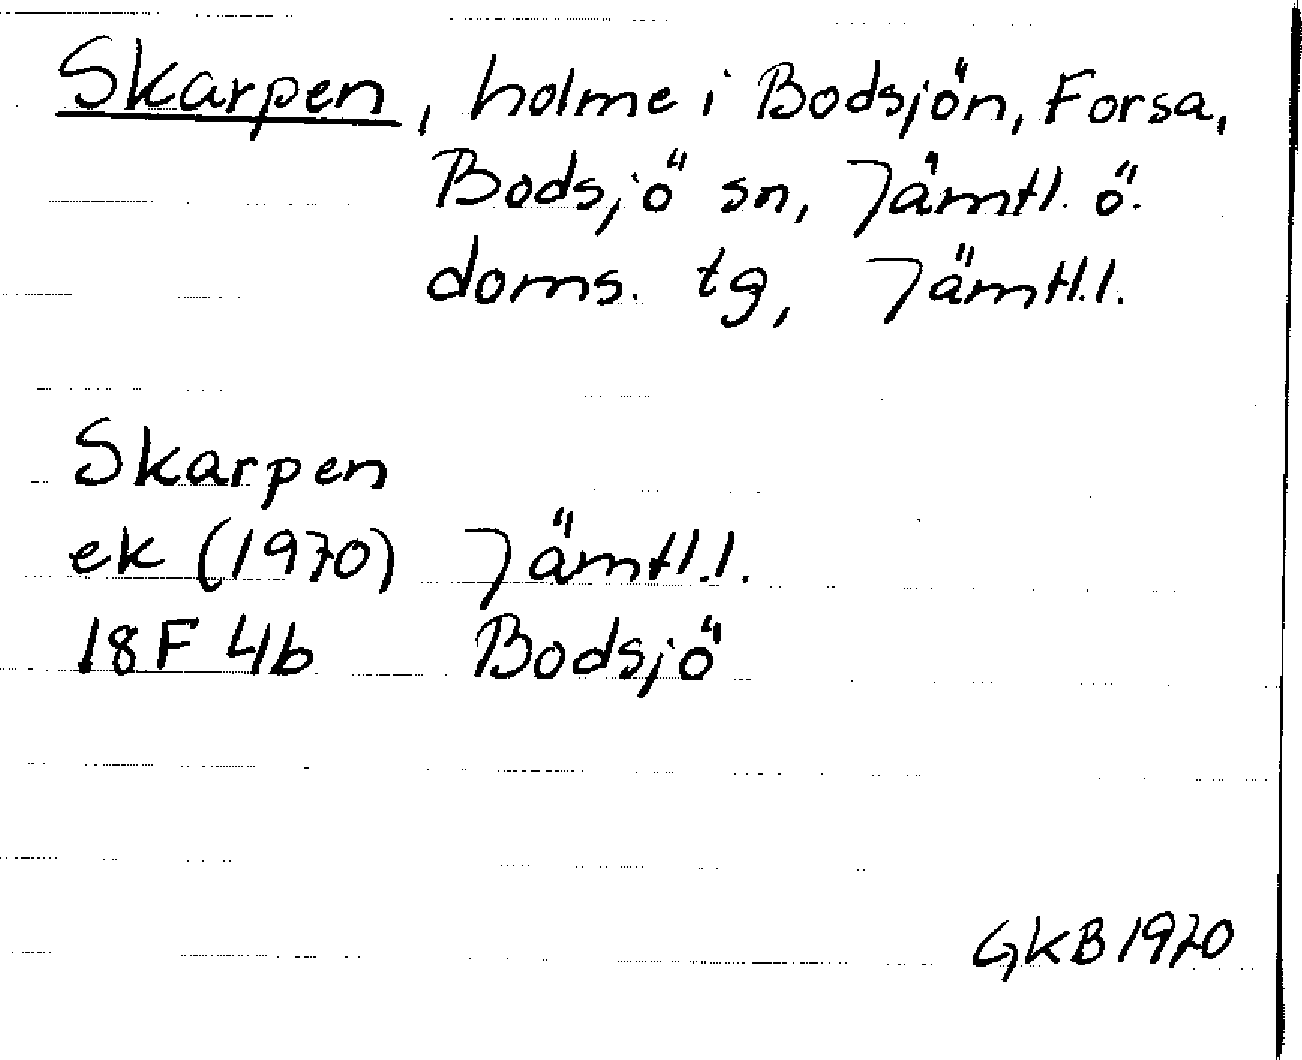 Skarpen, holme i Bodsjön, Forsa,
Bodsjö sn, Jämtl. ö.
doms. tg, Jämtl.l.
Skarpen
ek (1970) Jämtl.l.
18F 4b Bodsjö
GKB 1970